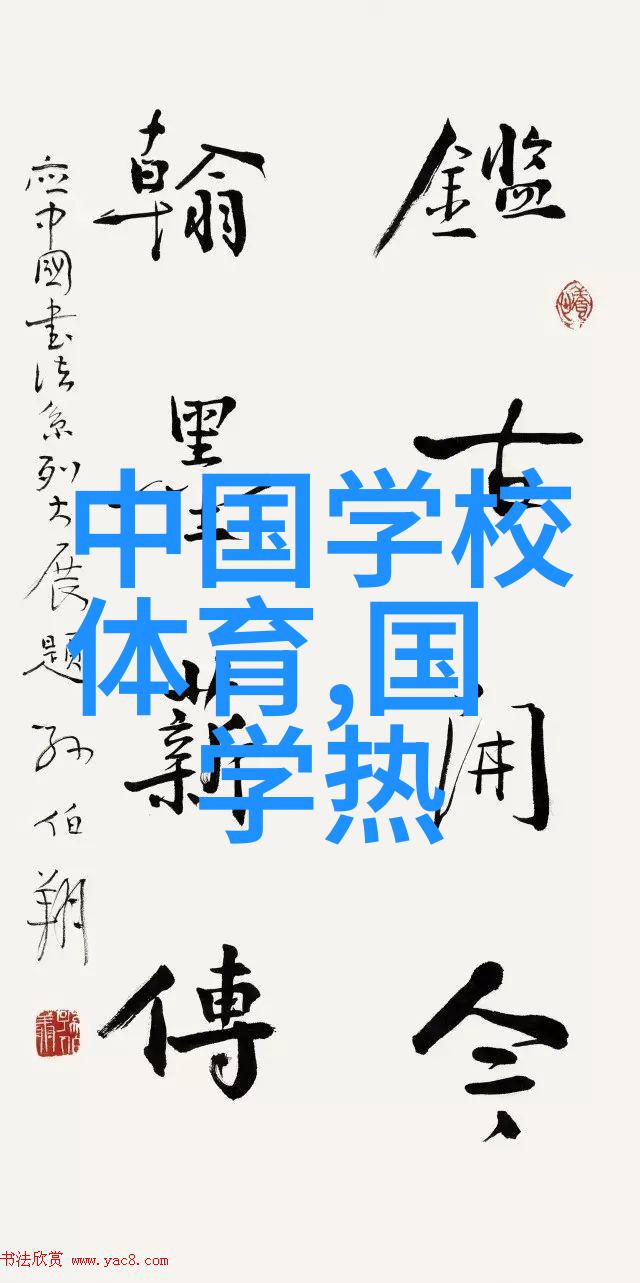 鑑古開今
翰墨薪傳
應中國書法系列大展題 孫伯翔
中国学校
体育,国
学热
书法欣赏 www.yac8.com